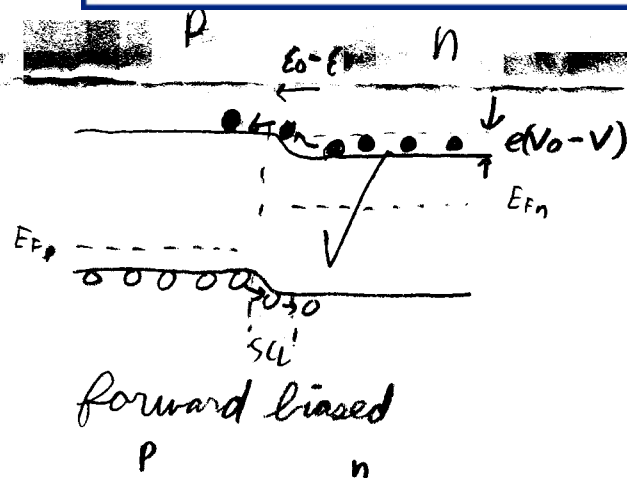 P n
ε₀-ε
e(V₀-V)
EFn
EFp
SCL
forward biased
p n